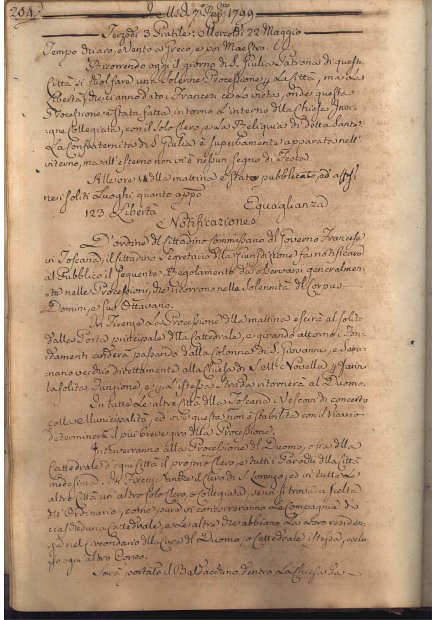 204
1799
Terzodì 3 Pratile: Mercoldì 22 Maggio
Tempo chiaro, e Vento a Greco, e poi Maestro.
Ricorrendo oggi il giorno di S. Giulia Patrona di questa
Città si suol fare una Solenne Processione p la Città, ma la
Libertà, che ci anno dato i Francesi ce la vieta, onde questa
Processione è stata fatta intorno l'interno della Chiesa Insi-
gne Collegiata, con il solo Clero, e la Reliquia di detta Santa.
La Confraternita di S. Giulia è superbamente apparata nell'
interno, ma all'esterno non vi è nessun segno di Festa
Alle ore 11 della mattina è stato pubblicato, ed affisso
nei soliti Luoghi quanto appo
123 Liberta Equaglianza
Notificazione
D'ordine del Cittadino Commissario del Governo Francese
in Toscana, il Cittadino Segretario della Giurisdizione fa notificare
al Pubblico il seguente Regolamento da osservarsi generalmen-
te nelle Processioni, che ricorrono nella Solennità del Corpus
Domini, e sua Ottava.
In Firenze la Processione della mattina escirà al solito
dalla Porta principale della Cattedrale, e girando attorno i Fon-
damenti anderà passando dalla Colonna di S. Giovanni, e Semi-
nario vecchio direttamente alla Chiesa di S. M. Novella p farvi
la solita Funzione, e p l'istessa strada ritornerà al Duomo.
In tutte le altre Città della Toscana i Vescovi di concerto
colla Municipalità, ed ove questa non è stabilita con il Vicario
determinerà il più breve giro della Processione.
Interverranno alla Processione del Duomo, o sia della
Cattedrale di ogni Città il proprio Clero, e tutti i Parochi della Città
medesima. In Firenze anche il Clero di S. Lorenzo, ed in tutte le
altre Città un altro solo Clero, o Collegiata, se vi si trova a scelta
dell'Ordinario, come pure vi concorreranno la Compagnia di
ciascheduna Cattedrale, e le altre che abbiano la loro residen-
za nel circondario della Cura del Duomo, o Cattedrale istessa, esclu-
so ogni altro Corpo.
Sarà portato il Baldacchino dentro la Chiesa da